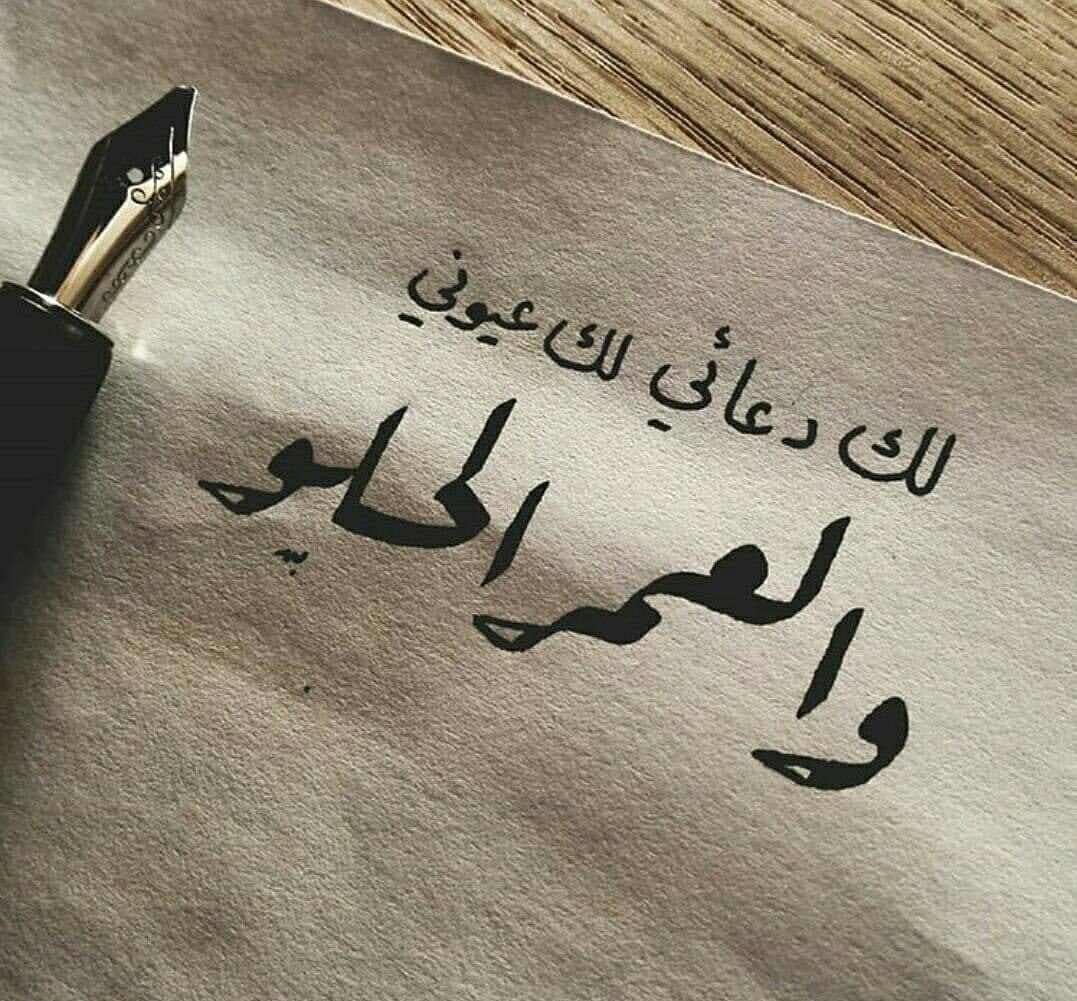 لك دعائي لك عيوني
والعمر الحلو